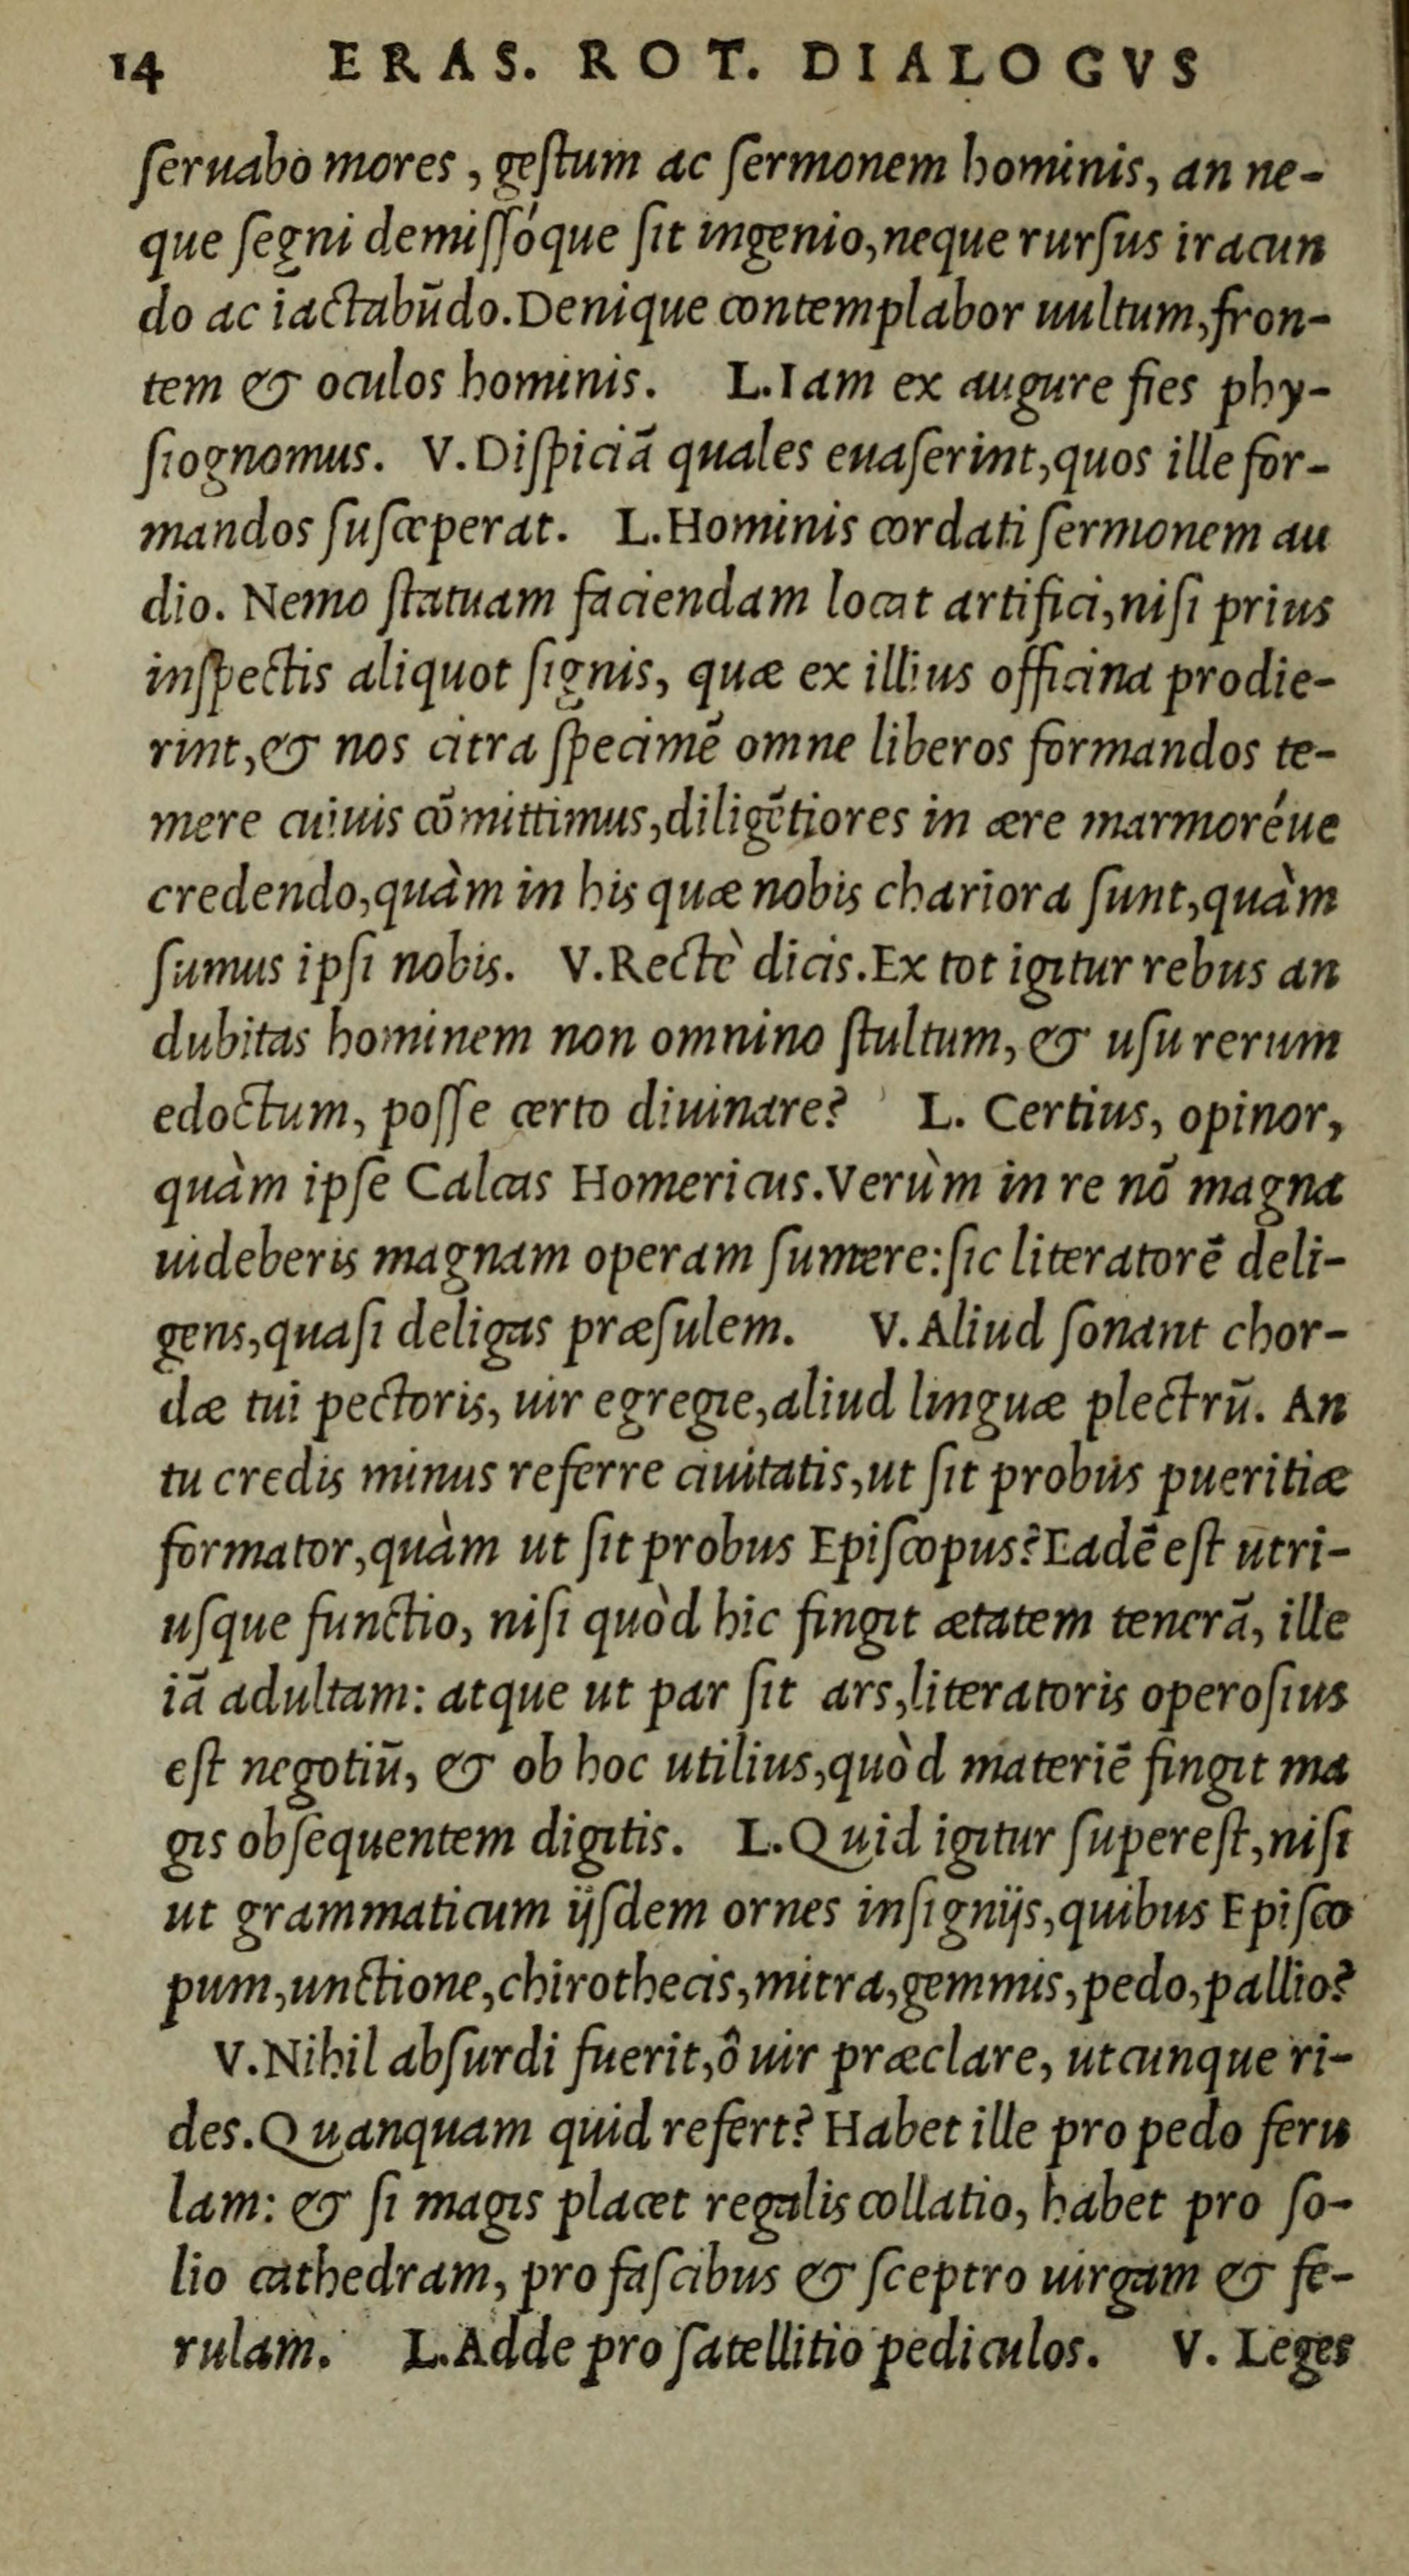 14 ERAS. ROT. DIALOGVS
ſeruabo mores, geſtum ac ſermonem hominis, an ne-
que ſegni demiſſóque ſit ingenio, neque rurſus iracun
do ac iactabūdo. Denique contemplabor uultum, fron-
tem & oculos hominis. L. Iam ex augure fies phy-
ſiognomus. V. Diſpiciā quales euaſerint, quos ille for-
mandos ſuſceperat. L. Hominis cordati ſermonem au
dio. Nemo ſtatuam faciendam locat artifici, niſi prius
inſpectis aliquot ſignis, quæ ex illius officina prodie-
rint, & nos citra ſpecimē omne liberos formandos te-
mere cuiuis cōmittimus, diligētiores in ære marmoréue
credendo, quàm in his quæ nobis chariora ſunt, quàm
ſumus ipſi nobis. V. Rectè dicis. Ex tot igitur rebus an
dubitas hominem non omnino ſtultum, & uſu rerum
edoctum, poſſe certo diuinare? L. Certius, opinor,
quàm ipſe Calcas Homericus. Verùm in re nō magna
uideberis magnam operam ſumere: ſic literatorē deli-
gens, quaſi deligas præſulem. V. Aliud ſonant chor-
dæ tui pectoris, uir egregie, aliud linguæ plectrū. An
tu credis minus referre ciuitatis, ut ſit probus pueritiæ
formator, quàm ut ſit probus Epiſcopus? Eadē eſt utri-
uſque functio, niſi quòd hic fingit ætatem tenerā, ille
iā adultam: atque ut par ſit ars, literatoris operoſius
eſt negotiū, & ob hoc utilius, quòd materiē fingit ma
gis obſequentem digitis. L. Quid igitur ſupereſt, niſi
ut grammaticum ijſdem ornes inſignijs, quibus Epiſco
pum, unctione, chirothecis, mitra, gemmis, pedo, pallio?
V. Nihil abſurdi fuerit, ô uir præclare, utcunque ri-
des. Quanquam quid refert? Habet ille pro pedo feru
lam: & ſi magis placet regalis collatio, habet pro ſo-
lio cathedram, pro faſcibus & ſceptro uirgam & fe-
rulam. L. Adde pro ſatellitio pediculos. V. Leges